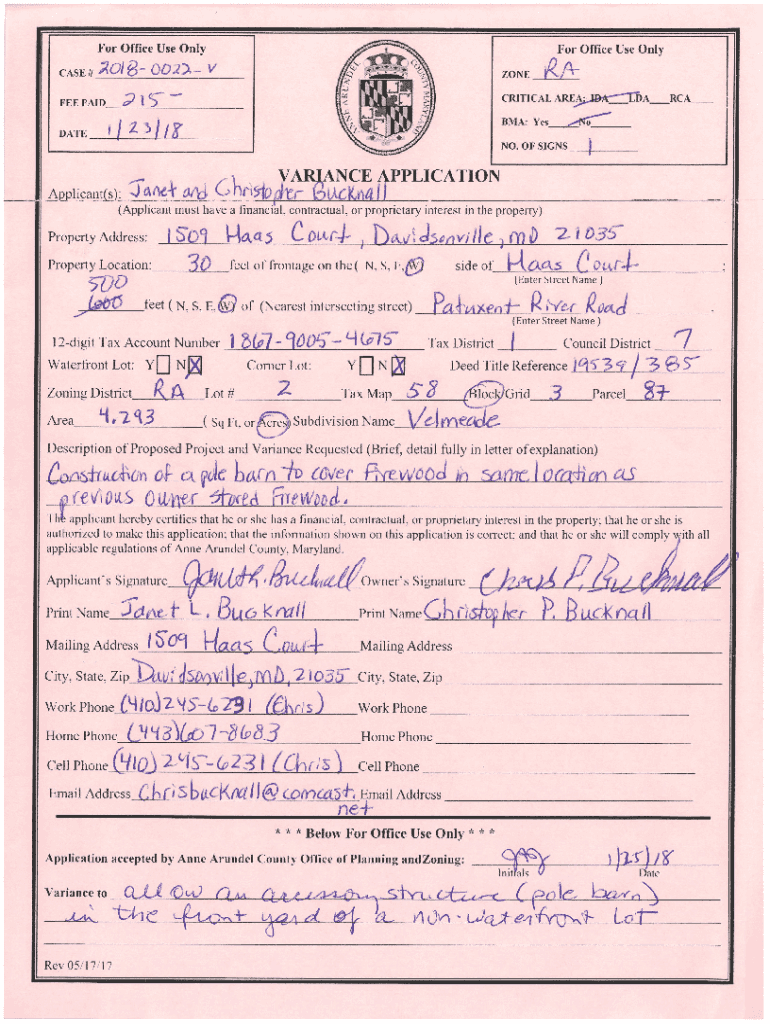 For Office Use Only
CASE # 2018-0022-V
FEE PAID 215-
DATE 1/23/18
ANNE ARUNDEL COUNTY MARYLAND
For Office Use Only
ZONE RA
CRITICAL AREA: IDA LDA RCA
BMA: Yes No
NO. OF SIGNS 1
VARIANCE APPLICATION
Applicant(s): Janet and Christopher Bucknall
(Applicant must have a financial, contractual, or proprietary interest in the property)
Property Address: 1509 Haas Court, Davidsonville, MD 21035
Property Location: 30 feet of frontage on the ( N, S, E, W) side of Haas Court ;
(Enter Street Name )
500
600 feet ( N, S, E, W) of (Nearest intersecting street) Patuxent River Road
(Enter Street Name )
12-digit Tax Account Number 1867-9005-4675 Tax District 1 Council District 7
Waterfront Lot: Y N X Corner Lot: Y N X Deed Title Reference 19539/385
Zoning District RA Lot # 2 Tax Map 58 Block/Grid 3 Parcel 87
Area 4.293 ( Sq Ft. or Acres) Subdivision Name Velmeade
Description of Proposed Project and Variance Requested (Brief, detail fully in letter of explanation)
Construction of a pole barn to cover firewood in same location as
previous owner stored firewood.
The applicant hereby certifies that he or she has a financial, contractual, or proprietary interest in the property; that he or she is
authorized to make this application; that the information shown on this application is correct; and that he or she will comply with all
applicable regulations of Anne Arundel County, Maryland.
Applicant's Signature Janet L. Bucknall Owner's Signature Chris P. Bucknall
Print Name Janet L. Bucknall Print Name Christopher P. Bucknall
Mailing Address 1509 Haas Court Mailing Address
City, State, Zip Davidsonville, MD, 21035 City, State, Zip
Work Phone (410)245-6231 (Chris) Work Phone
Home Phone (443)607-8683 Home Phone
Cell Phone (410) 245-6231 (Chris) Cell Phone
Email Address Chrisbucknall@comcast. Email Address
net
* * * Below For Office Use Only * * *
Application accepted by Anne Arundel County Office of Planning and Zoning: 1/25/18
Initials Date
Variance to allow an accessory structure (pole barn)
in the front yard of a non-waterfront lot
Rev 05/17/17